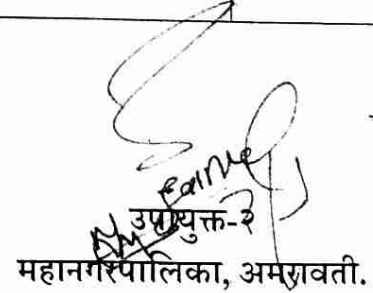 उपायुक्त-२
महानगरपालिका, अमरावती.